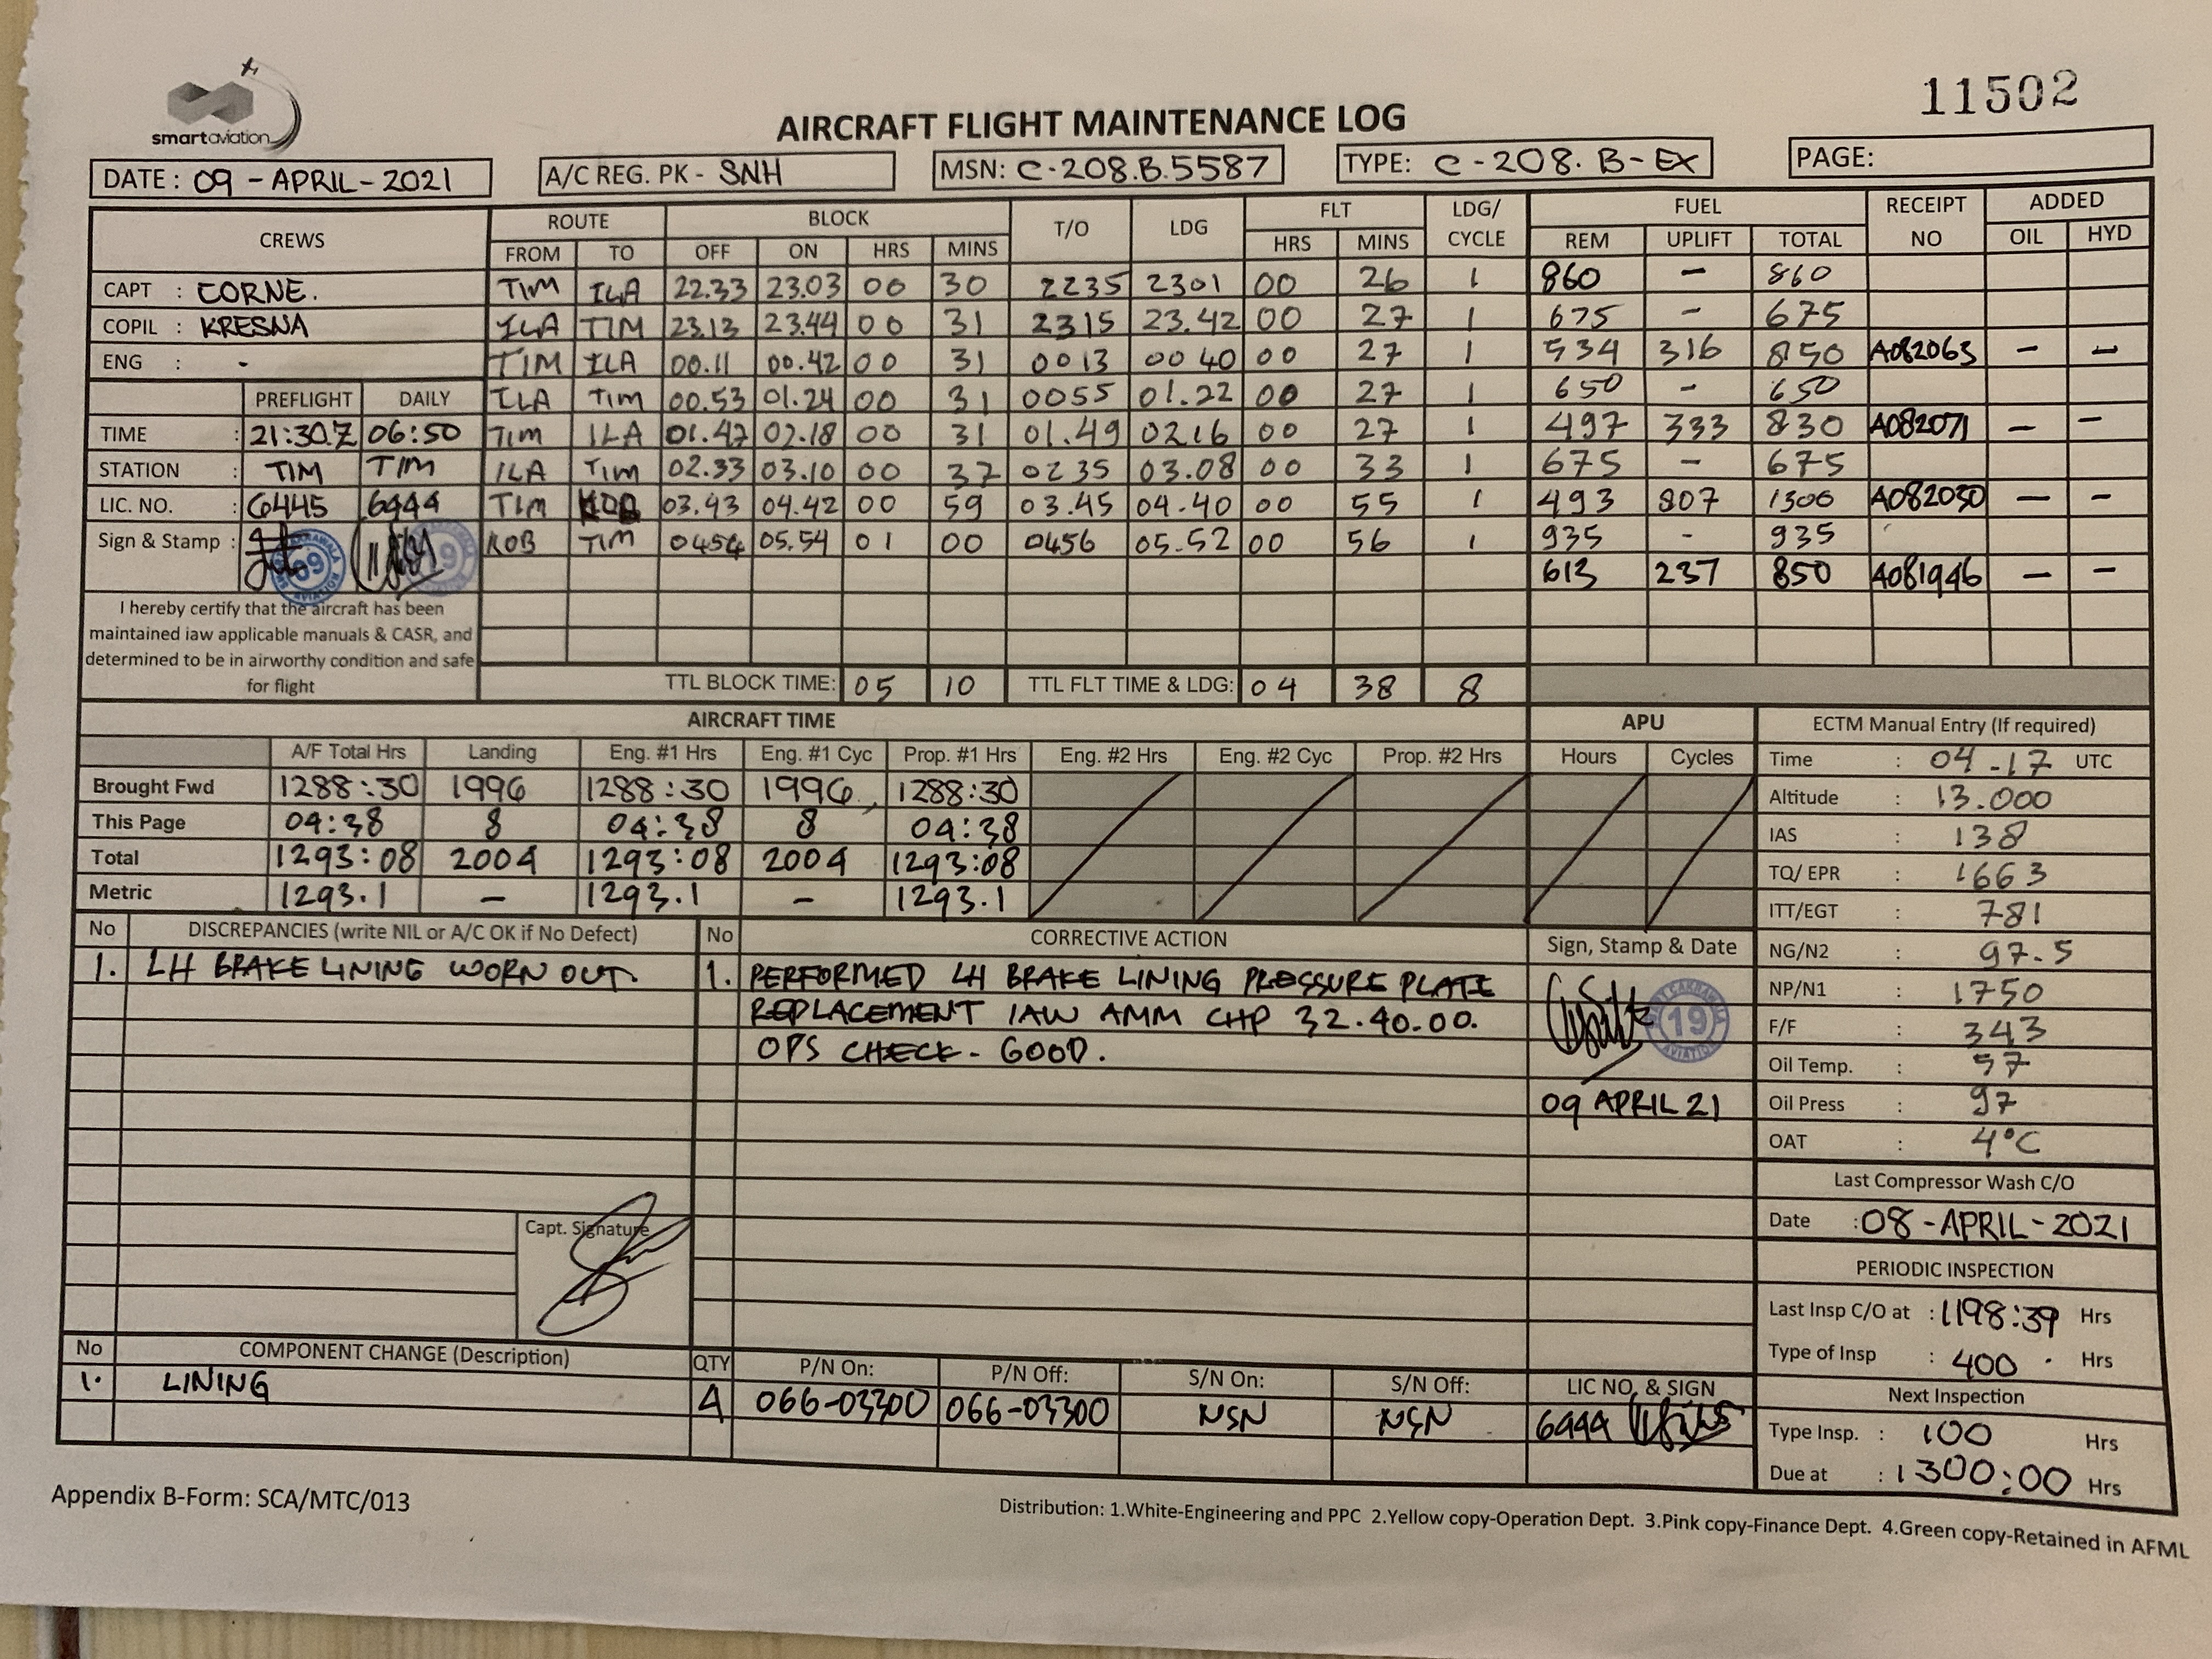 smartaviation
11502
AIRCRAFT FLIGHT MAINTENANCE LOG
DATE : 09 - APRIL - 2021 A/C REG. PK - SNH MSN: C-208.B.5587 TYPE: C-208. B-EX PAGE:
CREWS ROUTE BLOCK T/O LDG FLT LDG/ CYCLE FUEL RECEIPT NO ADDED
FROM TO OFF ON HRS MINS HRS MINS REM UPLIFT TOTAL OIL HYD
CAPT : CORNE. TIM ILA 22.33 23.03 00 30 2235 2301 00 26 1 860 - 860
COPIL : KRESNA ILA TIM 23.13 23.44 00 31 2315 23.42 00 27 1 675 - 675
ENG : - TIM ILA 00.11 00.42 00 31 0013 0040 00 27 1 534 316 850 A082063 - -
PREFLIGHT DAILY ILA TIM 00.53 01.24 00 31 0055 01.22 00 27 1 650 - 650
TIME : 21:30.Z 06:50 TIM ILA 01.47 02.18 00 31 01.49 0216 00 27 1 497 333 830 A082071 - -
STATION : TIM TIM ILA TIM 02.33 03.10 00 37 0235 03.08 00 33 1 675 - 675
LIC. NO. : 6445 6444 TIM 03.43 04.42 00 59 03.45 04.40 00 55 1 493 807 1300 A082030 - -
Sign & Stamp : 09 19 KOB TIM 0454 05.54 01 00 0456 05.52 00 56 1 935 - 935
613 237 850 A081946 - -
I hereby certify that the aircraft has been
maintained iaw applicable manuals & CASR, and
determined to be in airworthy condition and safe
for flight
TTL BLOCK TIME: 05 10 TTL FLT TIME & LDG: 04 38 8
AIRCRAFT TIME APU ECTM Manual Entry (If required)
A/F Total Hrs Landing Eng. #1 Hrs Eng. #1 Cyc Prop. #1 Hrs Eng. #2 Hrs Eng. #2 Cyc Prop. #2 Hrs Hours Cycles
Brought Fwd 1288:30 1996 1288:30 1996 1288:30
This Page 04:38 8 04:38 8 04:38
Total 1293:08 2004 1293:08 2004 1293:08
Metric 1293.1 - 1293.1 - 1293.1
Time : 04.17 UTC
Altitude : 13.000
IAS : 138
TQ/ EPR : 1663
ITT/EGT : 781
NG/N2 : 97.5
NP/N1 : 1750
F/F : 343
Oil Temp. : 57
Oil Press : 97
OAT : 4°C
No DISCREPANCIES (write NIL or A/C OK if No Defect) No CORRECTIVE ACTION Sign, Stamp & Date
1. LH BRAKE LINING WORN OUT. 1. PERFORMED LH BRAKE LINING PRESSURE PLATE
REPLACEMENT IAW AMM CHP 32.40.00.
OPS CHECK - GOOD.
19
09 APRIL 21
Capt. Signature
Last Compressor Wash C/O
Date : 08 - APRIL - 2021
PERIODIC INSPECTION
Last Insp C/O at : 1198:39 Hrs
Type of Insp : 400 Hrs
Next Inspection
Type Insp. : 100 Hrs
Due at : 1300:00 Hrs
No COMPONENT CHANGE (Description) QTY P/N On: P/N Off: S/N On: S/N Off: LIC NO, & SIGN
1. LINING 4 066-03300 066-03300 NSN NSN 6444
Appendix B-Form: SCA/MTC/013
Distribution: 1.White-Engineering and PPC 2.Yellow copy-Operation Dept. 3.Pink copy-Finance Dept. 4.Green copy-Retained in AFML